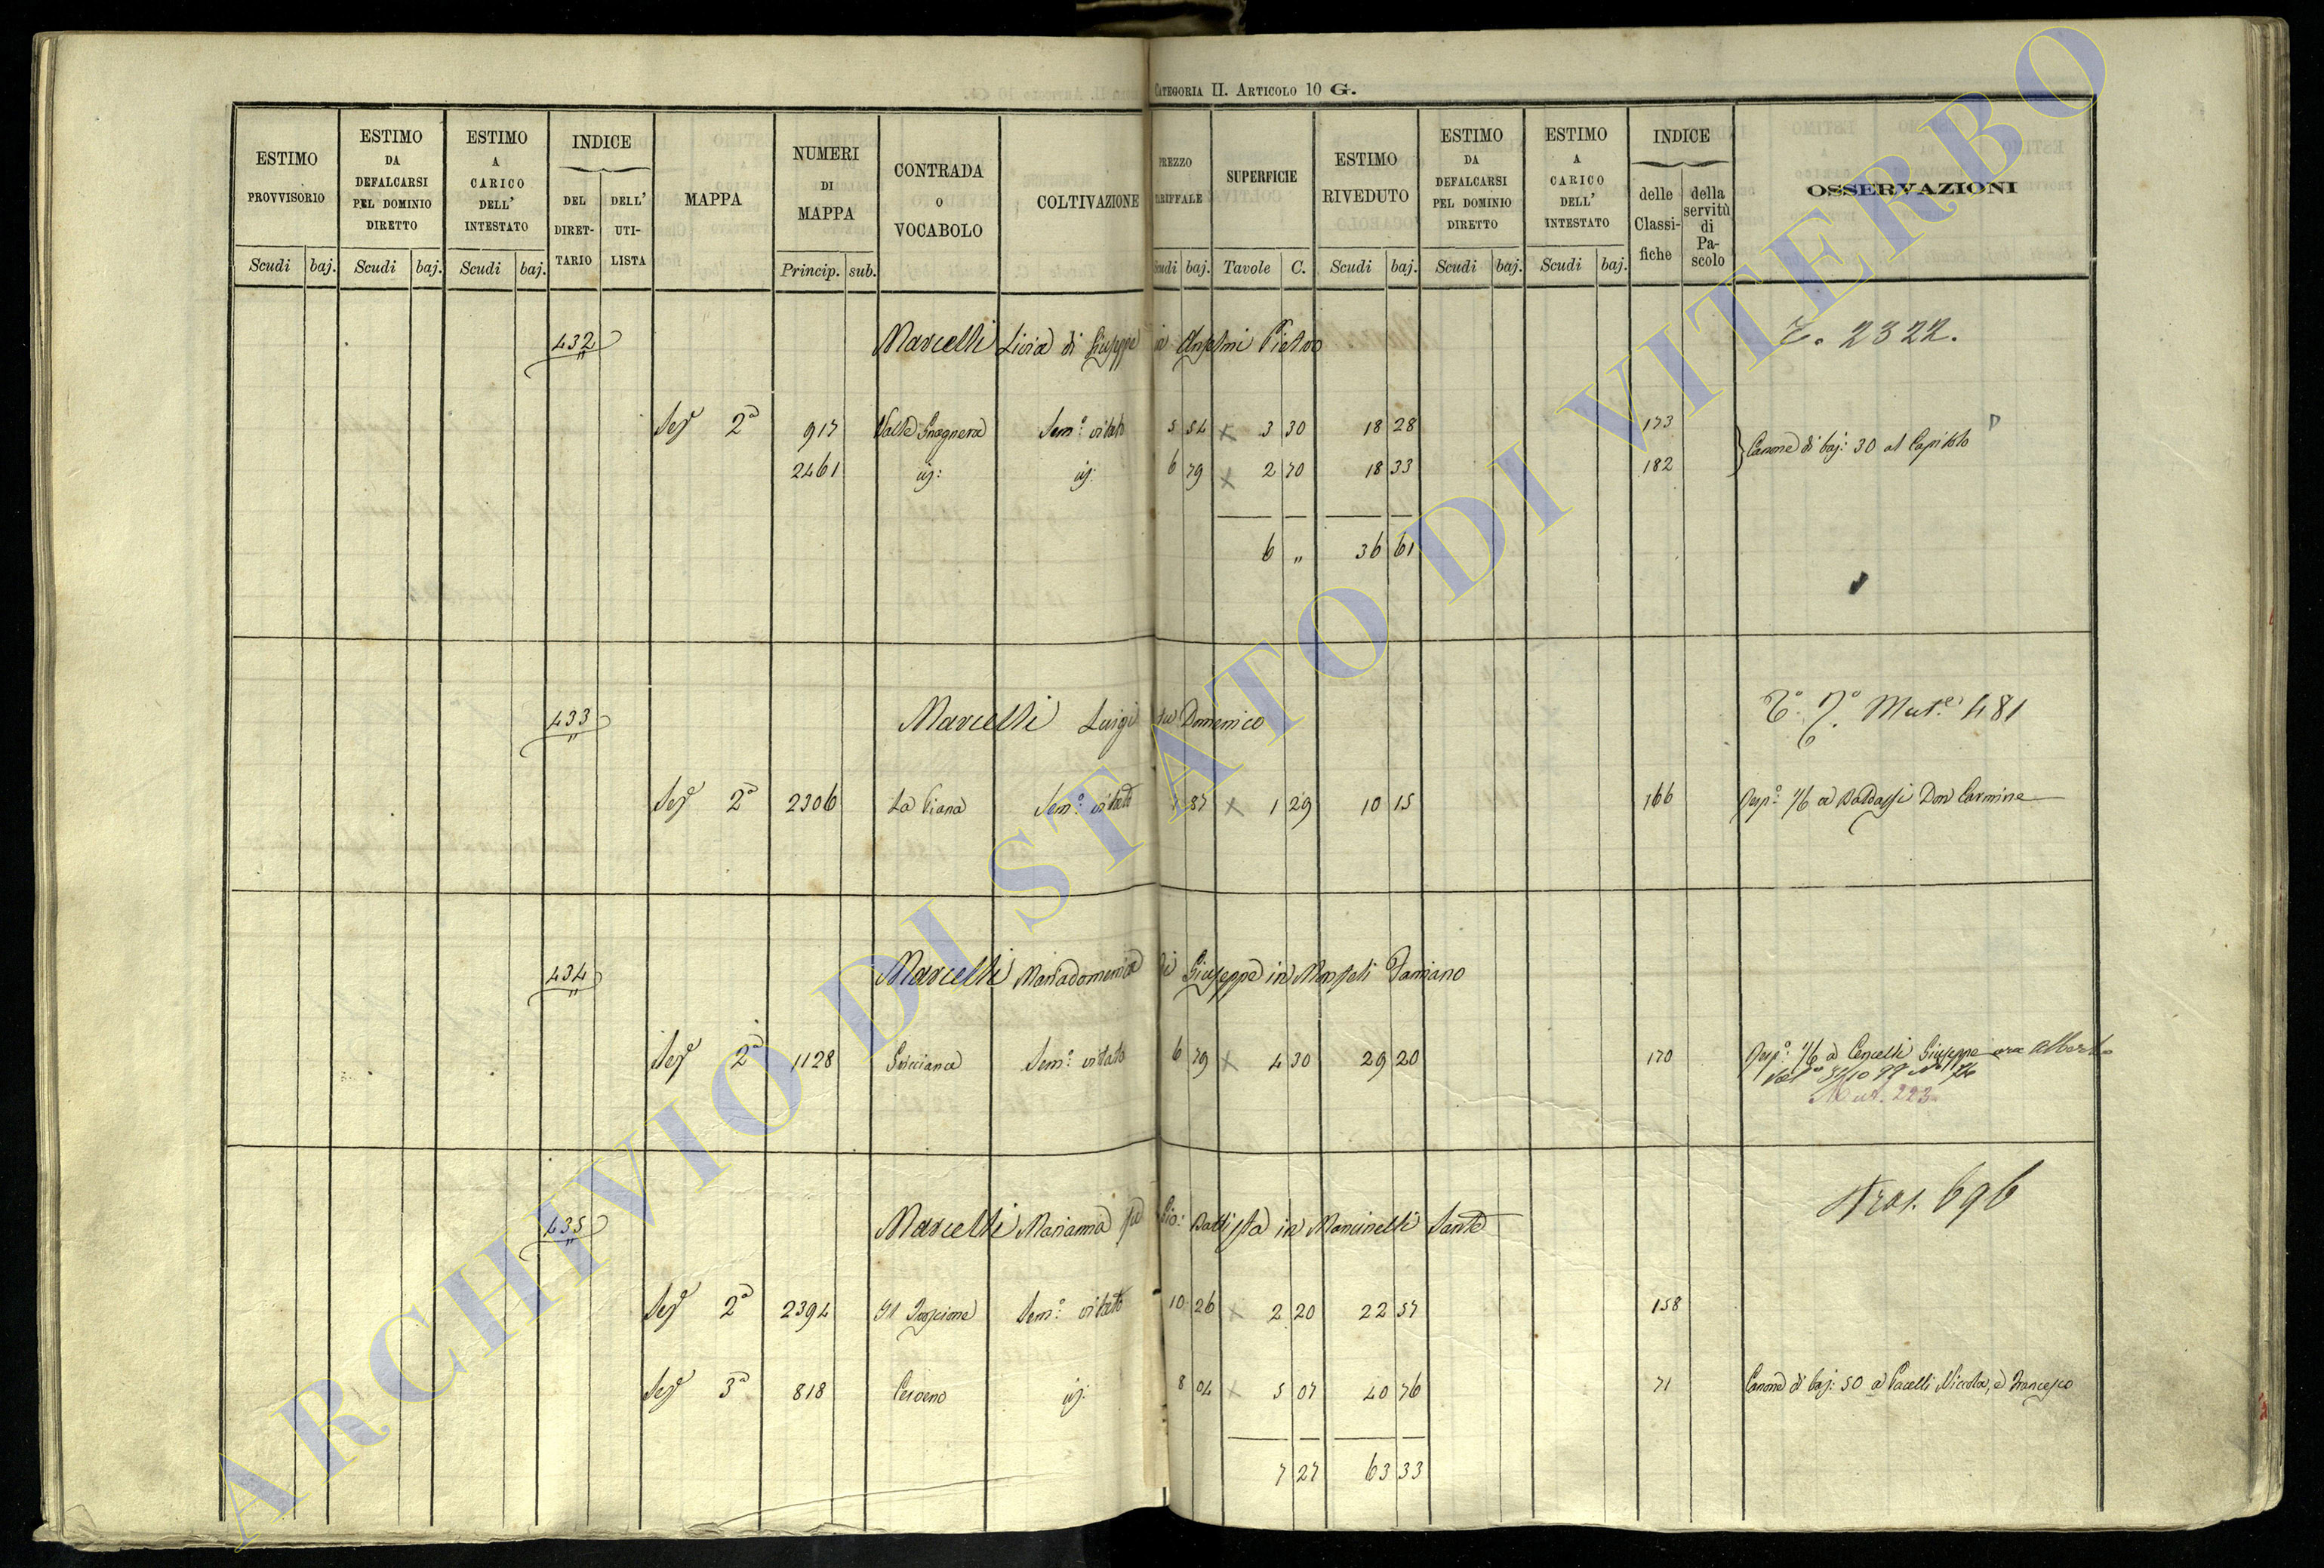 CATEGORIA II. ARTICOLO 10 G.
ESTIMO PROVVISORIO
Scudi baj.
ESTIMO DA DEFALCARSI PEL DOMINIO DIRETTO
Scudi baj.
ESTIMO A CARICO DELL' INTESTATO
Scudi baj.
INDICE
DEL DIRET- TARIO
DELL' UTI- LISTA
MAPPA
NUMERI DI MAPPA
Princip. sub.
CONTRADA O VOCABOLO
COLTIVAZIONE
baj.
SUPERFICIE
Tavole C.
ESTIMO RIVEDUTO
Scudi baj.
ESTIMO DA DEFALCARSI PEL DOMINIO DIRETTO
Scudi baj.
ESTIMO A CARICO DELL' INTESTATO
Scudi baj.
INDICE
delle Classi- fiche
della servitù di Pa- scolo
OSSERVAZIONI
432 Marcelli Livia di Giuseppe in Anselmi Pietro 2322.
2ª 917 Valle Sem.º vitato 5 54 3 30 18 28 173
Canone di baj: 30 al Capitolo
2461 6 79 2 70 18 33 182
6 " 36 61
433 Marcelli Luigi fu Domenico 481
2ª 2306 La Piana Sem.º vitato 87 1 29 10 15 166 a Baldassi Don Carmine
434 Marcelli Mariadomenica di Giuseppe in Damiano
2ª 1128 Sem.º vitato 6 79 4 30 29 20 170 a Cencelli Giuseppe ora Alberto
Mut. 223
435 Marcelli Marianna fu Gio: Battista in Mancinelli Sante 696
2ª 2394 Il Sem.º vitato 10 26 2 20 22 57 158
3ª 818 8 04 5 07 40 76 71 Canone di baj: 50 a Pacelli Niccola, e Francesco
7 27 63 33
ARCHIVIO DI STATO DI VITERBO